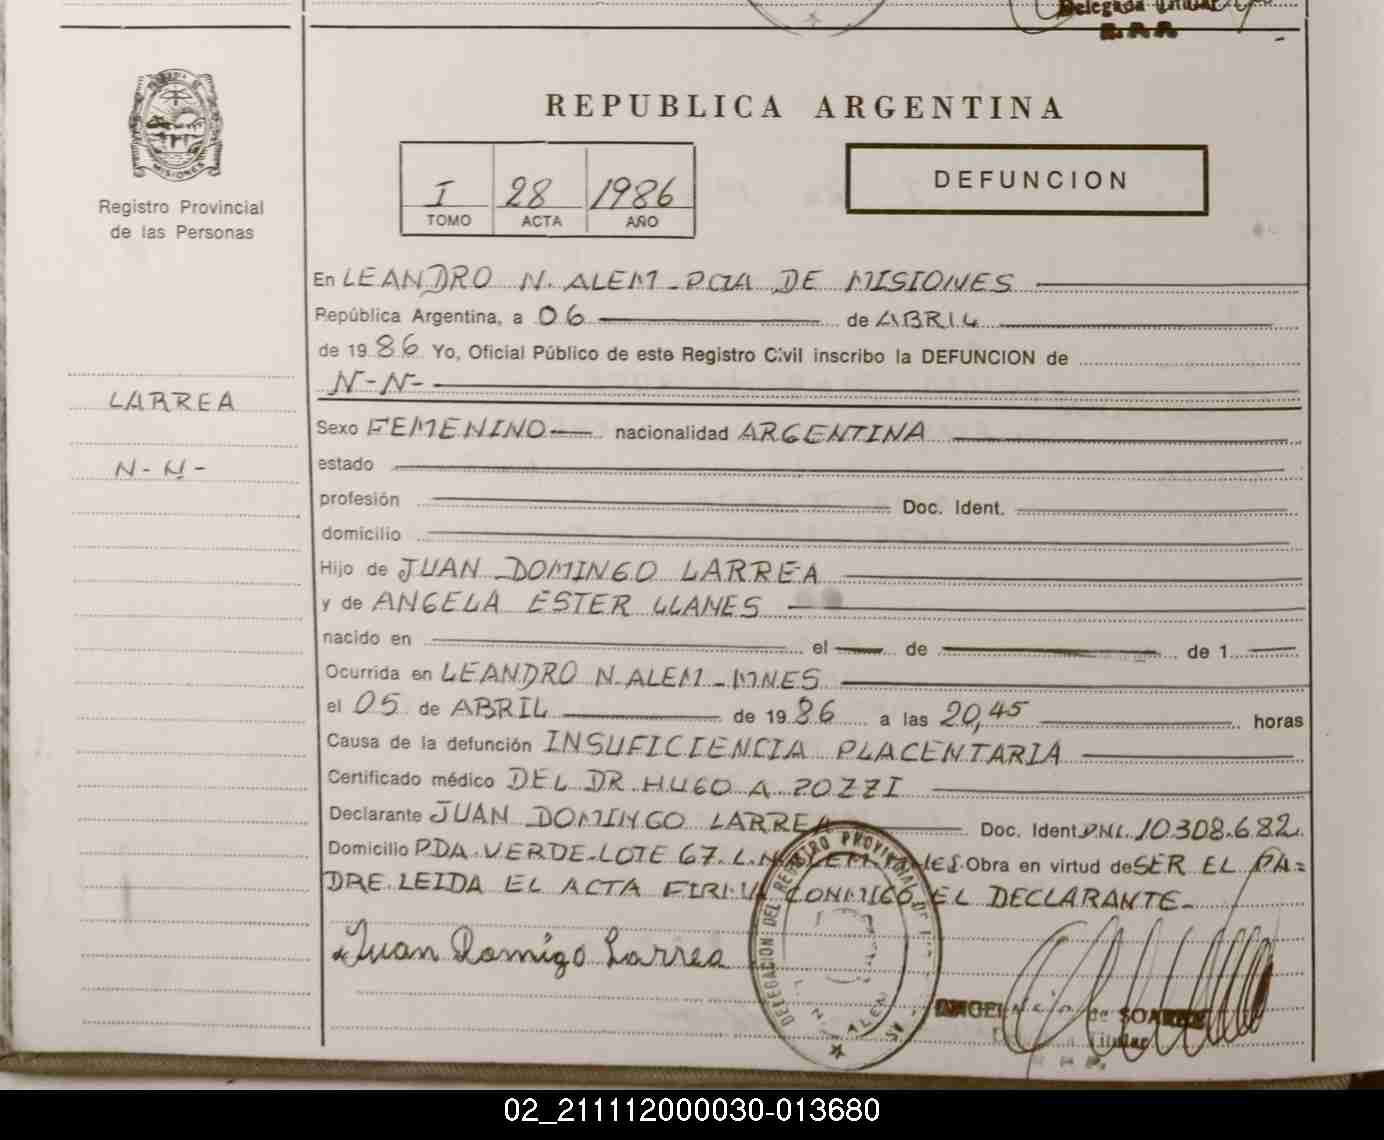 Delegada Titular
R.P.P.
MISIONES
Registro Provincial
de las Personas
REPUBLICA ARGENTINA
I 28 1986
TOMO ACTA AÑO
DEFUNCION
LARREA
N-N-
En LEANDRO N. ALEM - PCIA DE MISIONES
República Argentina, a 06 de ABRIL
de 1986 Yo, Oficial Público de este Registro Civil inscribo la DEFUNCION de
N-N-
Sexo FEMENINO nacionalidad ARGENTINA
estado
profesión Doc. Ident.
domicilio
Hijo de JUAN DOMINGO LARREA
y de ANGELA ESTER LLANES
nacido en el de de 1
Ocurrida en LEANDRO N. ALEM - MNES
el 05 de ABRIL de 1986 a las 20,45 horas
Causa de la defunción INSUFICIENCIA PLACENTARIA
Certificado médico DEL DR. HUGO A. POZZI
Declarante JUAN DOMINGO LARREA Doc. Ident DNI. 10.308.682
Domicilio PDA. VERDE-LOTE 67. L.N. ALEM. MNES. Obra en virtud de SER EL PA=
DRE. LEIDA EL ACTA FIRMA CONMIGO EL DECLARANTE-
Juan Domigo Larrea
DELEGACION DEL REGISTRO PROVINCIAL DE
ALEM
de SOAREZ
Titular
02_211112000030-013680